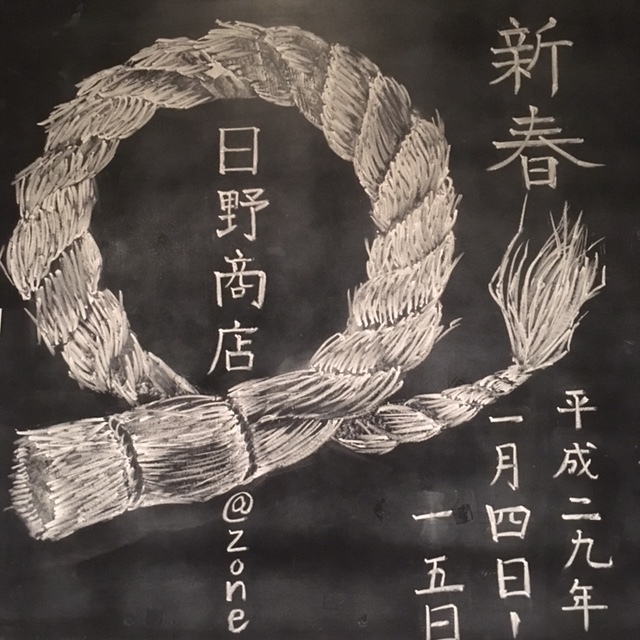 新春
平成二九年
一月四日ー
一五日
日野商店
@zone